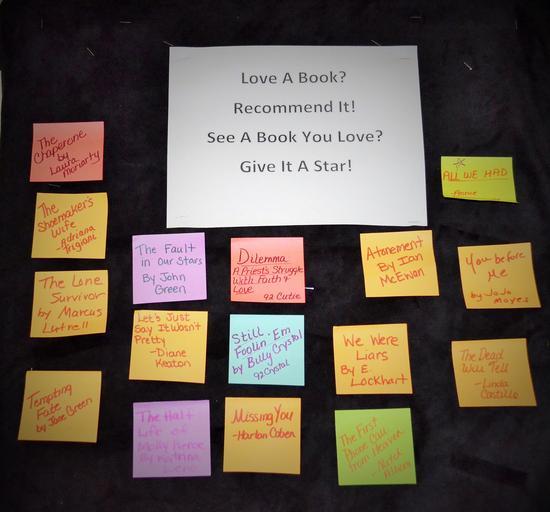 Love A Book?
Recommend It!
See A Book You Love?
Give It A Star!
The
Chaperone
by
Laura
Moriarty
The
Shoemaker's
Wife
-Adriana
Trigiani
The Lone
Survivor
by Marcus
Lutrell
Tempting
Fate
by Jane Green
The Fault
in Our Stars
By John
Green
Let's Just
Say It Wasn't
Pretty
-Diane
Keaton
The Half
Life of
Molly Pierce
By Katrina
Dilemma
A Priest's Struggle
With Faith &
Love
92 Cutie
Still
Foolin Em
by Billy Crystal
92 Crystal
Missing You
-Harlan Coben
Atonement
By Ian
McEwan
We Were
Liars
By E.
Lockhart
The First
Phone Call
from Heaven
- Mitch
Albom
ALL WE HAD
-Annie
You before
Me
by JoJo
Moyes
The Dead
Will Tell
-Linda
Castillo